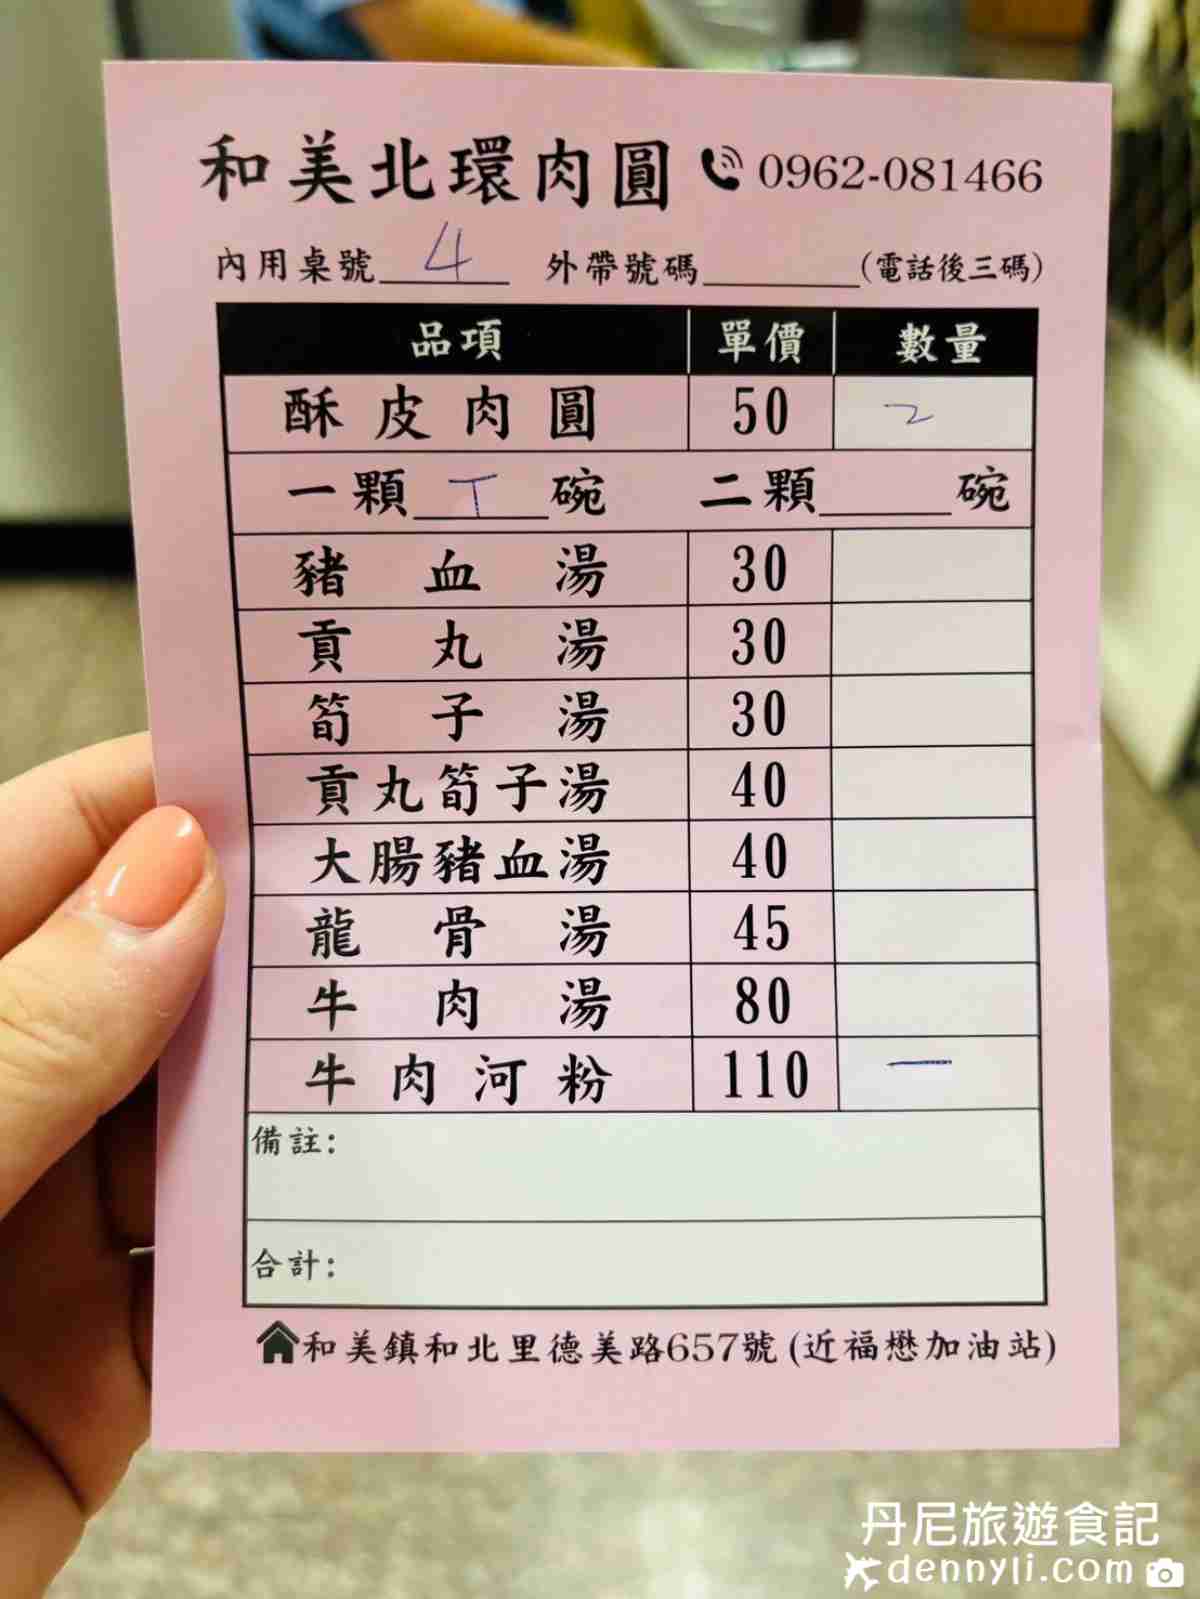 和美北環肉圓 0962-081466
內用桌號 4 外帶號碼 (電話後三碼)
品項 單價 數量
酥皮肉圓 50 2
一顆 T 碗 二顆 碗
豬血湯 30
貢丸湯 30
筍子湯 30
貢丸筍子湯 40
大腸豬血湯 40
龍骨湯 45
牛肉湯 80
牛肉河粉 110 一
備註:
合計:
和美鎮和北里德美路657號 (近福懋加油站)
丹尼旅遊食記
dennyli.com